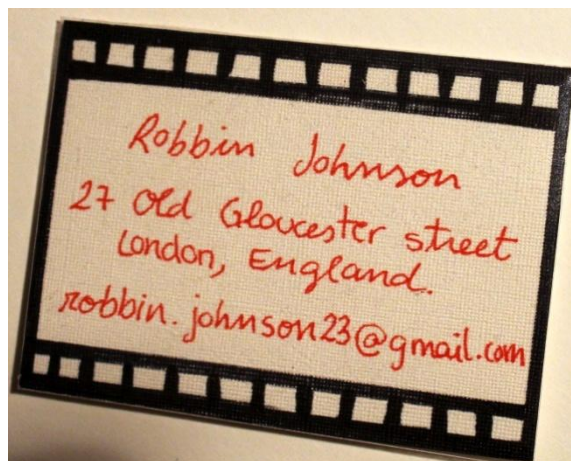 Robbin Johnson
27 Old Gloucester street
London, England.
robbin.johnson23@gmail.com